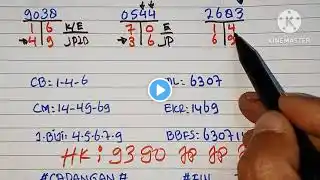 9038 0544 2683
1 6 K/E 7 0 E 1 4
4 9 JP2D 3 6 JP 6 9
CB: 1-4-6 ML: 6307
CM: 14-49-69 EKR: 1469
1.BIJI: 4-5-6-7-9 BBFS: 630714
HK: 9390 JP JP
#CADANGAN #
MADE WITH
KINEMASTER